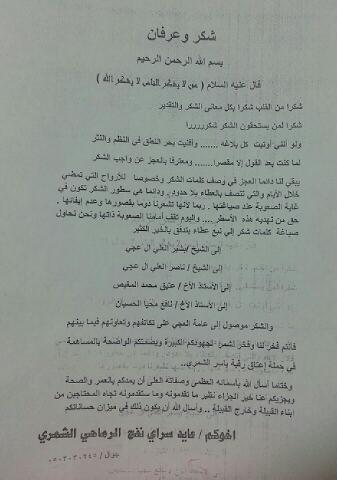 شكر وعرفان
بسم الله الرحمن الرحيم
قال عليه السلام ( من لا يشكر الناس لا يشكر الله )
شكرا من القلب شكرا بكل معانى الشكر والتقدير
شكرا لمن يستحقون الشكر شكررررا
ولو أنني أوتيت كل بلاغة ...... وأفنيت بحر النطق في النظم والنثر
لما كنت بعد القول إلا مقصرا....... ومعترفا بالعجز عن واجب الشكر
يبقى لنا دائما العجز في وصف كلمات الشكر وخصوصا للأرواح التي تمضي
خلال الأيام والتي تتصف بالعطاء بلا حدود . ودائما هي سطور الشكر تكون في
غاية الصعوبة عند صياغتها . ربما لأنها تشعرنا دوما بقصورها وعدم إيفائها .
حق من نهديه هذه الأسطر .... واليوم تقف أمامنا الصعوبة ذاتها ونحن نحاول
صياغة كلمات شكر إلى نبع عطاء يتدفق بالخير الكثير
إلى الشيخ /بشير العلي ال عجي
إلى الشيخ / ناصر العلي ال عجي
إلى الأستاذ الأخ / عتيق محمد المقيص
إلى الأستاذ الأخ / نافع محيا الحسيان
والشكر موصول إلى عامة العجي على تكاتفهم وتعاونهم فيما بينهم
فأنتم فخر لنا وفخر لشمر لجهودكم الكبيرة وبصمتكم الواضحة بالمساهمة
في حملة إعتاق رقبة ياسر الشمري..
وختاما أسال الله بأسمائه العظمى وصفاته العلى أن يمدكم بالعمر والصحة
ويجزيكم عنا خير الجزاء نظير ما تقدمونه وما ستقدمونه تجاه المحتاجين من
أبناء القبيلة وخارج القبيلة .. وأسال الله أن يكون ذلك في ميزان حسناتكم
اخوكم / عايد سراي نفج الرماهي الشمري
جوال / ٠٥٠٣٠٣٠٢٤٥